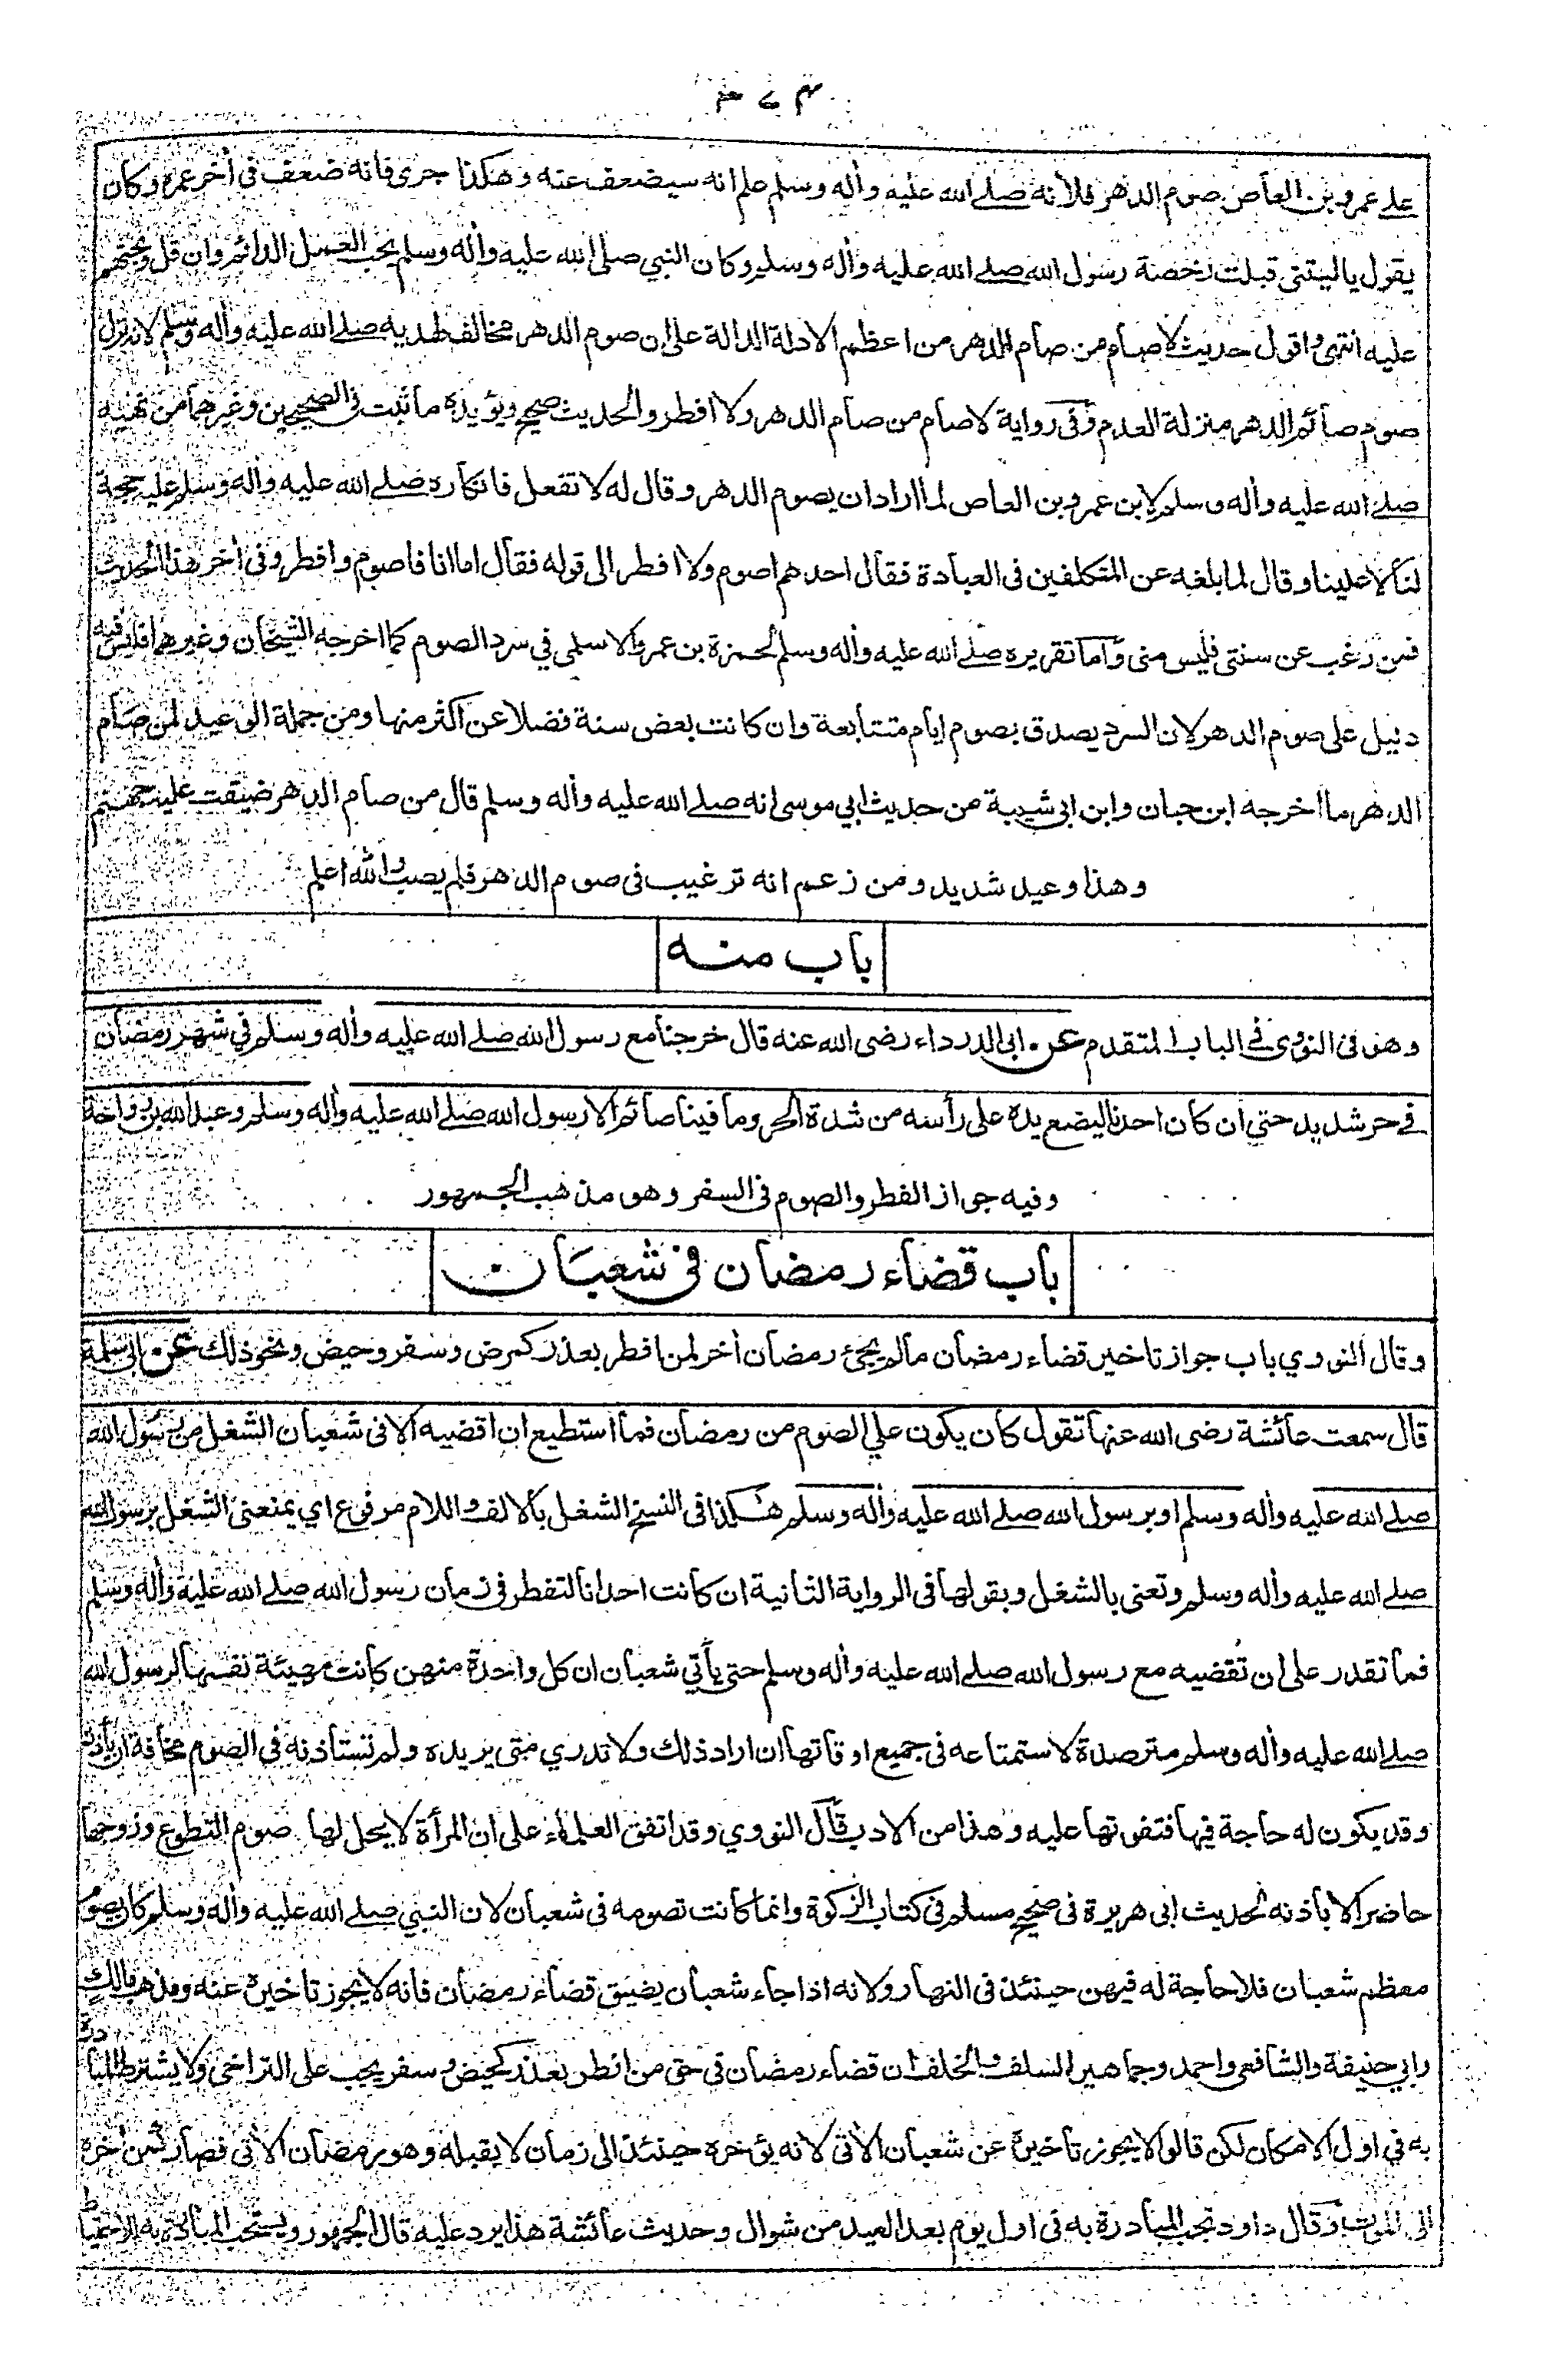 على عمرو بن العاص صوم الدهر فلأنه صلے الله عليه وأله وسلم علم انه سيضعف عنه وهكذا جرى فانه ضعف فى أخر عمره وكان
يقول يا ليتنى قبلت رخصة رسول الله صلے الله عليه وأله وسلم وكان النبي صلى الله عليه وأله وسلم يحب العمل الدائم وان قل ويحثهم
عليه انتهى واقول حديث لا صام من صام الدهر من اعظم الادلة الدالة على ان صوم الدهر مخالف لهديه صلے الله عليه وأله وسلم لانه نزل
صوم صائم الدهر منزلة العدم وفى رواية لا صام من صام الدهر ولا افطر والحديث صحيح ويؤيده ما ثبت فى الصحيحين وغيرهما من نهيه
صلے الله عليه وأله وسلم لابن عمرو بن العاص لما اراد ان يصوم الدهر وقال له لا تفعل فانكاره صلے الله عليه وأله وسلم عليه حجة
لنا لا علينا وقال لما بلغه عن المتكلفين فى العبادة فقال احدهم اصوم ولا افطر الى قوله فقال اما انا فاصوم وافطر وفى أخر هذا الحديث
فمن رغب عن سنتى فليس منى وأما تقريره صلے الله عليه وأله وسلم لحمزة بن عمرو الاسلمي في سرد الصوم كما اخرجه الشيخان وغيرهما فليس فيه
دليل على صوم الدهر لان السرد يصدق بصوم ايام متتابعة وان كانت بعض سنة فضلا عن اكثر منها ومن جملة الوعيد لمن صام
الدهر ما اخرجه ابن حبان وابن ابى شيبة من حديث ابي موسى انه صلے الله عليه وأله وسلم قال من صام الدهر ضيقت عليه جهنم
وهذا وعيد شديد ومن زعم انه ترغيب فى صوم الدهر فلم يصب والله اعلم
باب منه
وهو فى النووى في الباب المتقدم عن ابى الدرداء رضى الله عنه قال خرجنا مع رسول الله صلے الله عليه وأله وسلم في شهر رمضان
في حر شديد حتى ان كان احدنا ليضع يده على رأسه من شدة الحر وما فينا صائم الا رسول الله صلے الله عليه وأله وسلم وعبد الله بن رواحة
وفيه جواز الفطر والصوم فى السفر وهو مذهب الجمهور
باب قضاء رمضان فى شعبان
وقال النووي باب جواز تاخير قضاء رمضان مالم يجئ رمضان أخر لمن افطر بعذر كمرض وسفر وحيض ونحو ذلك عن ابى سلمة
قال سمعت عائشة رضى الله عنها تقول كان يكون علي الصوم من رمضان فما استطيع ان اقضيه الا فى شعبان الشغل من رسول الله
صلے الله عليه وأله وسلم او برسول الله صلے الله عليه وأله وسلم هكذا فى النسخ الشغل بالالف واللام مرفوع اي يمنعنى الشغل برسول الله
صلے الله عليه وأله وسلم وتعنى بالشغل وبقولها فى الرواية الثانية ان كانت احدانا لتفطر في زمان رسول الله صلے الله عليه وأله وسلم
فما تقدر على ان تقضيه مع رسول الله صلے الله عليه وأله وسلم حتى يأتي شعبان ان كل واحدة منهن كانت مهيئة نفسها لرسول الله
صلے الله عليه وأله وسلم مترصدة لاستمتاعه فى جميع اوقاتها ان اراد ذلك ولا تدري متى يريده ولم تستأذنه فى الصوم مخافة ان يأذن
وقد يكون له حاجة فيها فتفوتها عليه وهذا من الادب قال النووي وقد اتفق العلماء على ان المرأة لا يحل لها صوم التطوع وزوجها
حاضر الا بأذنه لحديث ابى هريرة فى صحيح مسلم فى كتاب الزكوة وانما كانت تصومه فى شعبان لان النبي صلے الله عليه وأله وسلم كان يصوم
معظم شعبان فلا حاجة له فيهن حينئذ فى النهار ولانه اذا جاء شعبان يضيق قضاء رمضان فانه لا يجوز تاخيره عنه ومذهب مالك
وابي حنيفة والشافعى واحمد وجماهير السلف والخلف ان قضاء رمضان فى حق من افطر بعذر كحيض وسفر يجب على التراخى ولا يشترط المبادرة
به في اول الامكان لكن قالوا لا يجوز تاخيره عن شعبان الأتى لانه يؤخره حينئذ الى زمان لا يقبله وهو رمضان الأتى فصار كمن أخره
الى الموت وقال داود تجب المبادرة به فى اول يوم بعد العيد من شوال وحديث عائشة هذا يرد عليه قال الجمهور ويستحب المبادرة به للاحتياط